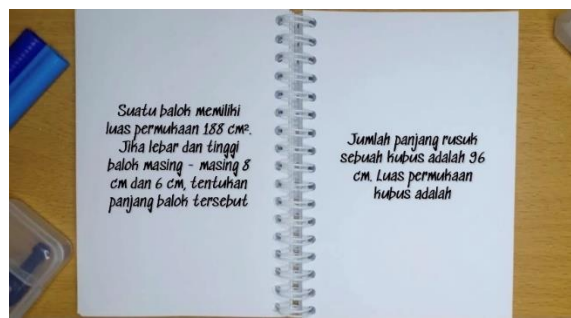 Suatu balok memiliki
luas permukaan 188 cm².
Jika lebar dan tinggi
balok masing - masing 8
cm dan 6 cm, tentukan
panjang balok tersebut
Jumlah panjang rusuk
sebuah kubus adalah 96
cm. Luas permukaan
kubus adalah